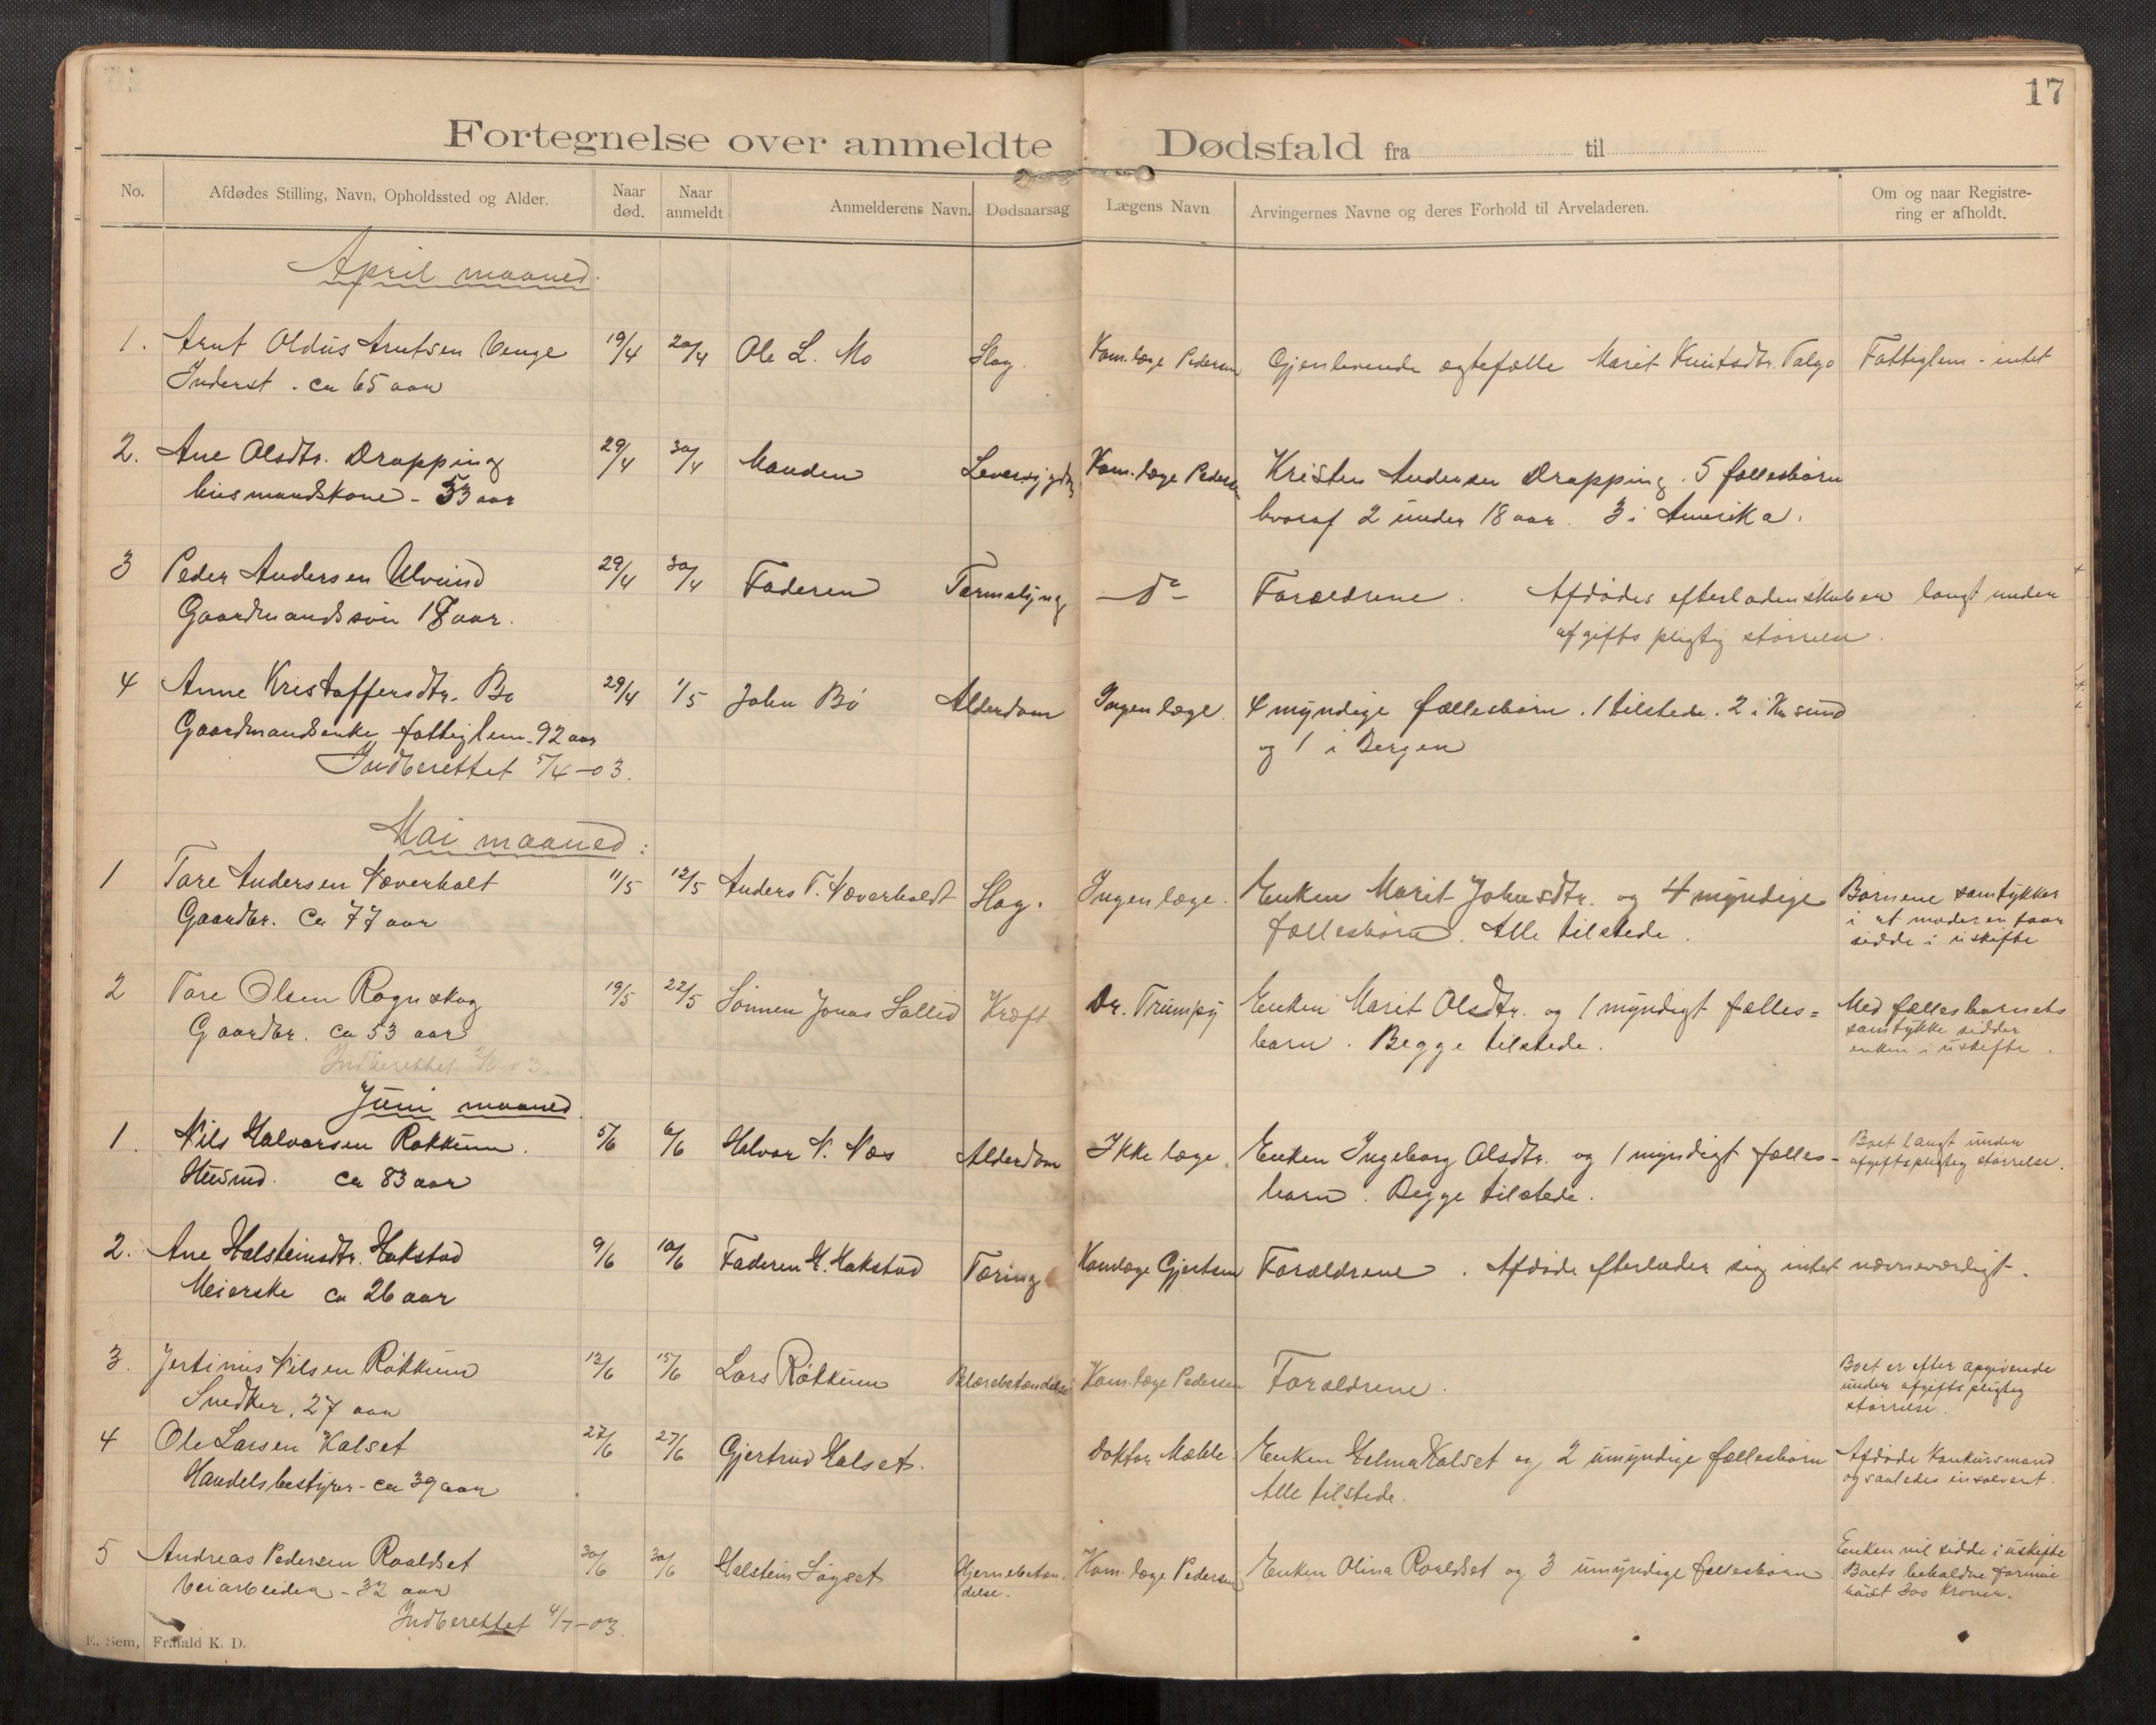 17
Fortegnelse over anmeldte Dødsfald fra til
No. Afdødes Stilling, Navn, Opholdssted og Alder. Naar død. Naar anmeldt Anmelderens Navn. Dødsaarsag Lægens Navn Arvingernes Navne og deres Forhold til Arveladeren. Om og naar Registrering er afholdt.
April maaned.
1. Arnt Oldus Arntsen Venge 19/4 20/4 Ole L. Mo Slag. Kom. læge Pedersen Gjenlevende ægtefælle Marit Knutsdtr. Talgø Fattiglem - intet
Inderst. ca 65 aar
2. Ane Olsdtr. Drøpping 29/4 30/4 Manden Kom. læge Pedersen Kristen Andersen Drøpping. 5 fællesbørn
husmandskone - 53 aar hvoraf 2 under 18 aar. 3 i Amerika.
3 Peder Andersen Ulvund 29/4 30/4 Faderen Tarmslyng do Forældrene. Afdødes efterladenskaber langt under
Gaardmandssøn 18 aar. afgiftspligtig størrelse.
4 Anne Kristoffersdtr. Bø 29/4 1/5 John Bø Alderdom Ingen læge. 4 myndige fællesbørn. 1 tilstede. 2 i Kr sund
Gaardmandsenke fattiglem. 92 aar og 1 i Bergen
Indberettet 5/4-03.
Mai maaned:
1 Tore Andersen Næverholt 11/5 12/5 Anders T. Næverholdt Slag. Ingen læge. Enken Marit Johnsdtr. og 4 myndige Børnene samtykker
Gaardbr. Ca 77 aar fællesbørn. Alle tilstede. i at moderen faar
sidde i uskifte
2 Tore Olsen Rognskog 19/5 22/5 Sønnen Jonas Kræft Dr. Trumpy Enken Marit Olsdtr. og 1 myndigt fælles= Med fællesbarnets
Gaardbr. ca 53 aar barn. Begge tilstede. samtykke sidder
enken i uskifte.
Indberettet
Juni maaned.
1. Nils Halvorsen Røkkum. 5/6 6/6 Halvor N. Næs Alderdom Ikke læge. Enken Ingeborg Olsdtr. og 1 myndigt fælles- Boet langt under
Husmd. ca 83 aar barn. Begge tilstede. afgiftspligtig størrelse.
2. Ane Halsteinsdtr. Hakstad 9/6 10/6 Faderen H. Hakstad Tæring Komlæge Gjertsen Forældrene. Afdøde efterlader sig intet nævneværdigt.
Meierske ca 26 aar
3. Jertinus Nilsen Røkkum 12/6 15/6 Lars Røkkum Kom. læge Pedersen Forældrene. Boet er efter opgivende
Snedker. 27 aar under afgiftspligtig
størrelse.
4 Ole Larsen Halset 27/6 27/6 Gjertrud Halset. Doktor Enken Helma Halset og 2 umyndige fællesbørn Afdøde konkursmand
Handelsbestyrer - ca 39 aar Alle tilstede. og saaledes insolvent.
5 Andreas Pedersen Roaldset 30/6 30/6 Halstein Søyset Hjernebetæn- Kom. læge Pedersen Enken Olina Roaldset og 3 umyndige fællesbørn Enken vil sidde i uskifte
Veiarbeider - 32 aar delse. Boets beholdne formue
høist 300 Kroner.
Indberettet 4/7-03.
E. Sem, Fr.hald K. D.